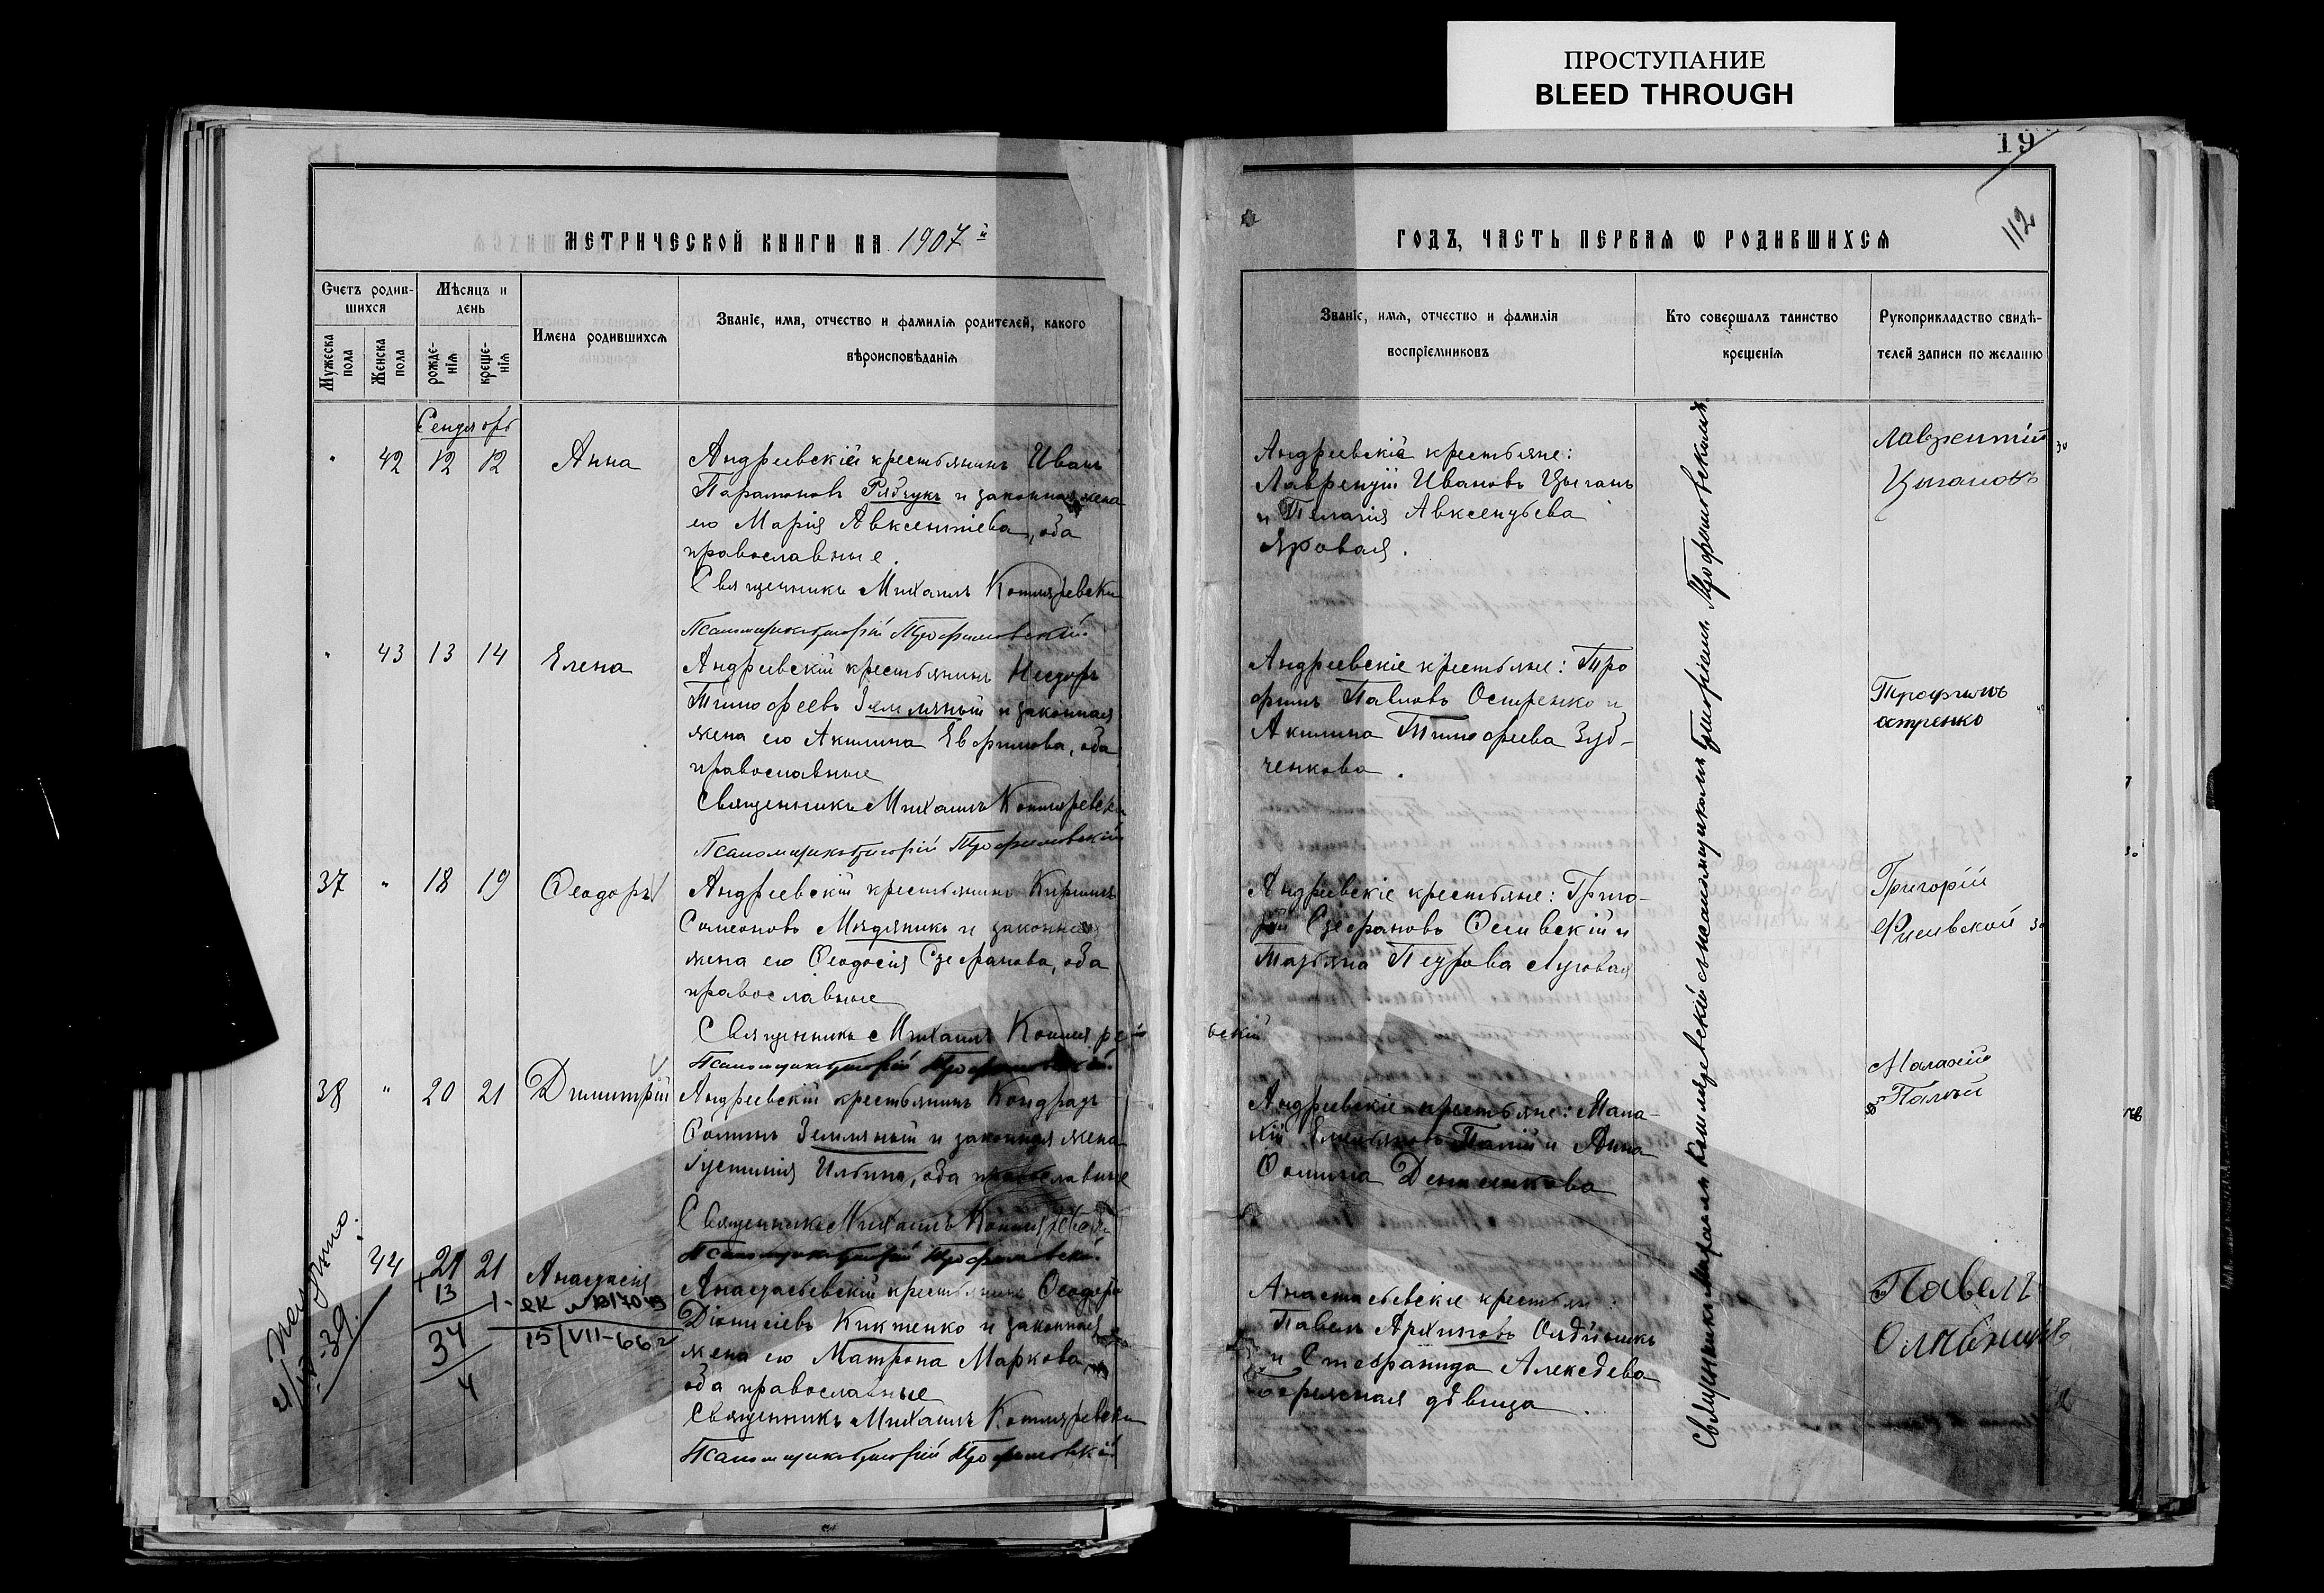 ПРОСТУПАНИЕ
BLEED THROUGH
19
112
МЕТРИЧЕСКОЙ КНИГИ НА 1907 й
ГОДЪ, ЧАСТЬ ПЕРВАЯ Ѡ РОДИВШИХСЯ
Счетъ родив-
шихся
Мѣсяцъ и
день
Мужеска
пола
Женска
пола
рожде-
нія
креще-
нія
Имена родившихся
Званіе, имя, отчество и фамилія родителей, какого
вѣроисповѣданія
Званіе, имя, отчество и фамилія
воспріемниковъ
Кто совершалъ таинство
крещенія
Рукоприкладство свидѣ-
телей записи по желанію
42 12 12 Анна
Андреевскій крестьянинъ Иванъ
Парамоновъ Рябчукъ и законная жена
его Марія Авксентіева, оба
православные.
Священникъ Михаилъ Котляревскі
Псаломщикъ Григорій Трофимовскій
Андреевскіе крестьяне:
Лаврентій Ивановъ Цыганъ
и Пелагія Авксентьева
Яровая.
Лаврентій
Цыгановъ
43 13 14 Елена
Андреевскій крестьянинъ
Тимофеевъ Земляный и законная
жена его Акилина Евфимова, оба
православные
Священникъ Михаилъ Котляревскі
Псаломщикъ Григорій Трофимовскій
Андреевскіе крестьяне: Тро
фимъ Павловъ Остренко и
Акилина Тимофеева Зуб-
ченкова.
Трофимъ
остренко
37 " 18 19 Ѳеодоръ
Андреевскій крестьянинъ Кириллъ
Симеоновъ Мядяникъ и законная
жена его Ѳеодосія Стефанова, оба
православные
Священникъ Михаилъ Котляре-
вскій
Псаломщикъ Григорій Трофимовскій
Андреевскіе крестьяне: Григо-
рій Стефановъ и
Татьяна Петрова Луговая
Григорій
38 " 20 21 Димитрій
Андреевскій крестьянинъ Кондратъ
Ѳоминъ Земляный и законная жена
Іустинія Ильина, оба православные
Священникъ Михаилъ Котляревскі
Псаломщикъ Григорій Трофимовскій
Андреевскіе крестьяне: Мала-
хій Палій и Анна
Ѳомина
Малахій
Палій
44 21 21 Анастасія
13
34
4
15/VII-66 г
Анастасьевскій крестьянинъ Ѳеодоръ
Діонисіевъ Киктенко и законная
жена его Матрона Маркова
оба православные
Священникъ Михаилъ Котляревскі
Псаломщикъ Григорій Трофимовскій
Анастасьевскіе крестьяне
Павелъ Архиповъ
и Стефанида Алексѣева
дѣвица.
Павелъ
Священникъ Михаилъ Котляревскій съ псаломщикомъ Григоріемъ Трофимовскимъ